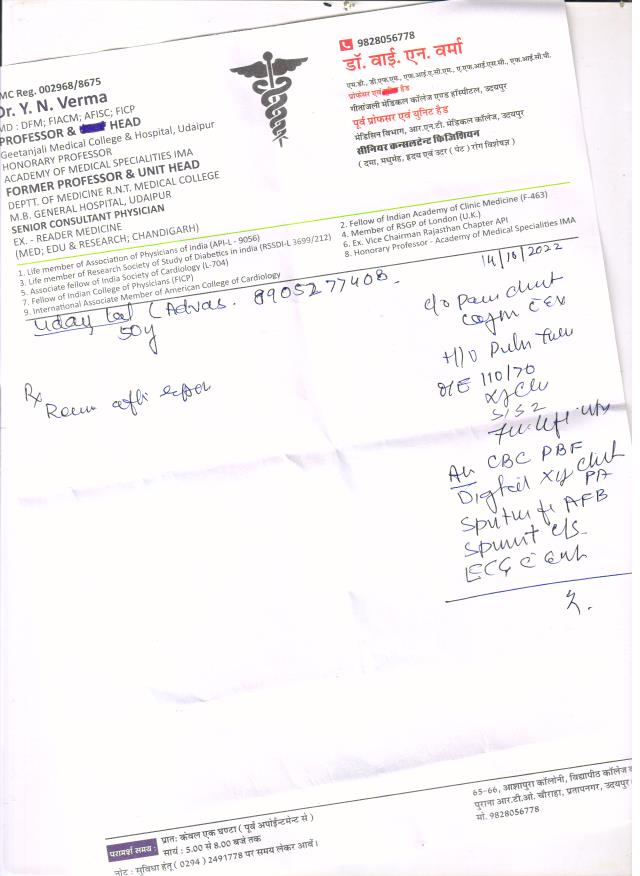 MC Reg. 002968/8675
Dr. Y. N. Verma
MD : DFM; FIACM; AFISC; FICP
PROFESSOR & HEAD
Geetanjali Medical College & Hospital, Udaipur
HONORARY PROFESSOR
ACADEMY OF MEDICAL SPECIALITIES IMA
FORMER PROFESSOR & UNIT HEAD
DEPTT. OF MEDICINE R.N.T. MEDICAL COLLEGE
M.B. GENERAL HOSPITAL, UDAIPUR
SENIOR CONSULTANT PHYSICIAN
EX. - READER MEDICINE
(MED; EDU & RESEARCH; CHANDIGARH)
9828056778
डॉ. वाई. एन. वर्मा
एम.डी., डी.एफ.एम., एफ.आई.ए.सी.एम., ए.एफ.आई.एस.सी., एफ.आई.सी.पी.
प्रोफेसर एवं हैड
गीतांजली मेडिकल कॉलेज एण्ड हॉस्पीटल, उदयपुर
पूर्व प्रोफसर एवं यूनिट हैड
मेडिसिन विभाग, आर.एन.टी. मेडिकल कॉलेज, उदयपुर
सीनियर कन्सलटेन्ट फिजिशियन
( दमा, मधुमेह, हृदय एवं उदर ( पेट ) रोग विशेषज्ञ )
1. Life member of Association of Physicians of India (API-L - 9056)
2. Fellow of Indian Academy of Clinic Medicine (F-463)
3. Life member of Research Society of Study of Diabetics in india (RSSDI-L 3699/212)
4. Member of RSGP of London (U.K.)
5. Associate fellow of India Society of Cardiology (L-704)
6. Ex. Vice Chairman Rajasthan Chapter API
7. Fellow of Indian College of Physicians (FICP)
8. Honorary Professor - Academy of Medical Specialities IMA
9. International Associate Member of American College of Cardiology
14/10/2022
Uday lal (Advas. 8905277408
50y
c/o Pain chest
H/O Pulm
O/E 110/70
S1S2
Rx
CBC PBF
Digital Xy chest
PA
Sputum for AFB
Sputum c/s
ECG
परामर्श समय :
प्रातः केवल एक घण्टा ( पूर्व अपोईन्टमेन्ट से )
सायं : 5.00 से 8.00 बजे तक
नोट : सुविधा हेतू ( 0294 ) 2491778 पर समय लेकर आवें।
65-66, आशापुरा कॉलोनी, विद्यापीठ कॉलेज
पुराना आर.टी.ओ. चौराहा, प्रतापनगर, उदयपुर
मो. 9828056778